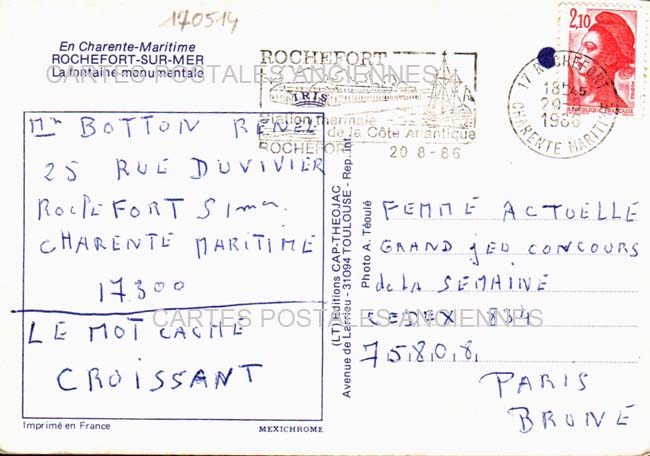 170514
En Charente-Maritime
ROCHEFORT-SUR-MER
La fontaine monumentale
CARTES POSTALES ANCIENNES
ROCHEFORT
IRIS
Station thermale
de la Côte Atlantique
ROCHEFORT
20 8-86
17 ROCHEFORT
18H45
20-8
1986
CHARENTE MARITIME
2,10
BOTTON RENÉ
25 RUE DUVIVIER
ROCHEFORT S/mer
CHARENTE MARITIME
17300
LE MOT CACHE
CROISSANT
(LT) Editions CAP-THEOJAC
Avenue de Larrieu - 31094 TOULOUSE - Rep. Int.
Photo A. Téoulé
FEMME ACTUELLE
GRAND JEU CONCOURS
de la SEMAINE
CEDEX 834
75.8.0.8.
PARIS
BRUNE
CARTES POSTALES ANCIENNES
Imprimé en France
MEXICHROME